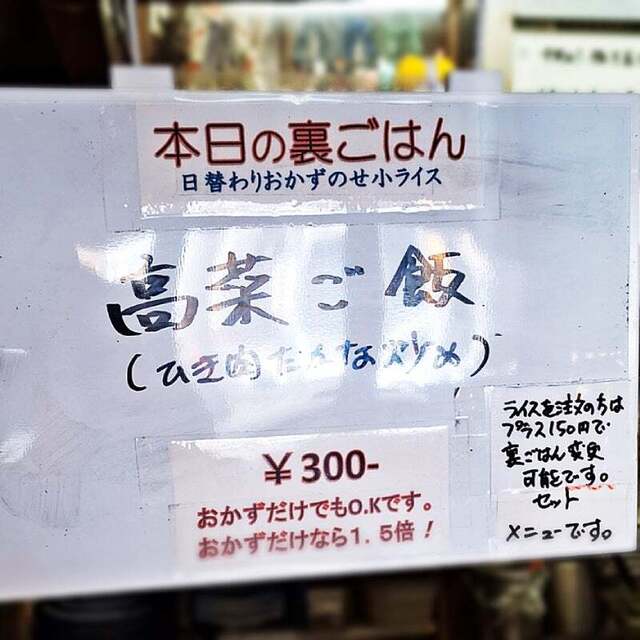 本日の裏ごはん
日替わりおかずのせ小ライス
高菜ご飯
(ひき肉たかな炒め)
¥300-
おかずだけでもO.Kです。
おかずだけなら1.5倍!
ライスを注文の方は
プラス150円で
裏ごはん変更
可能です。
セット
メニューです。